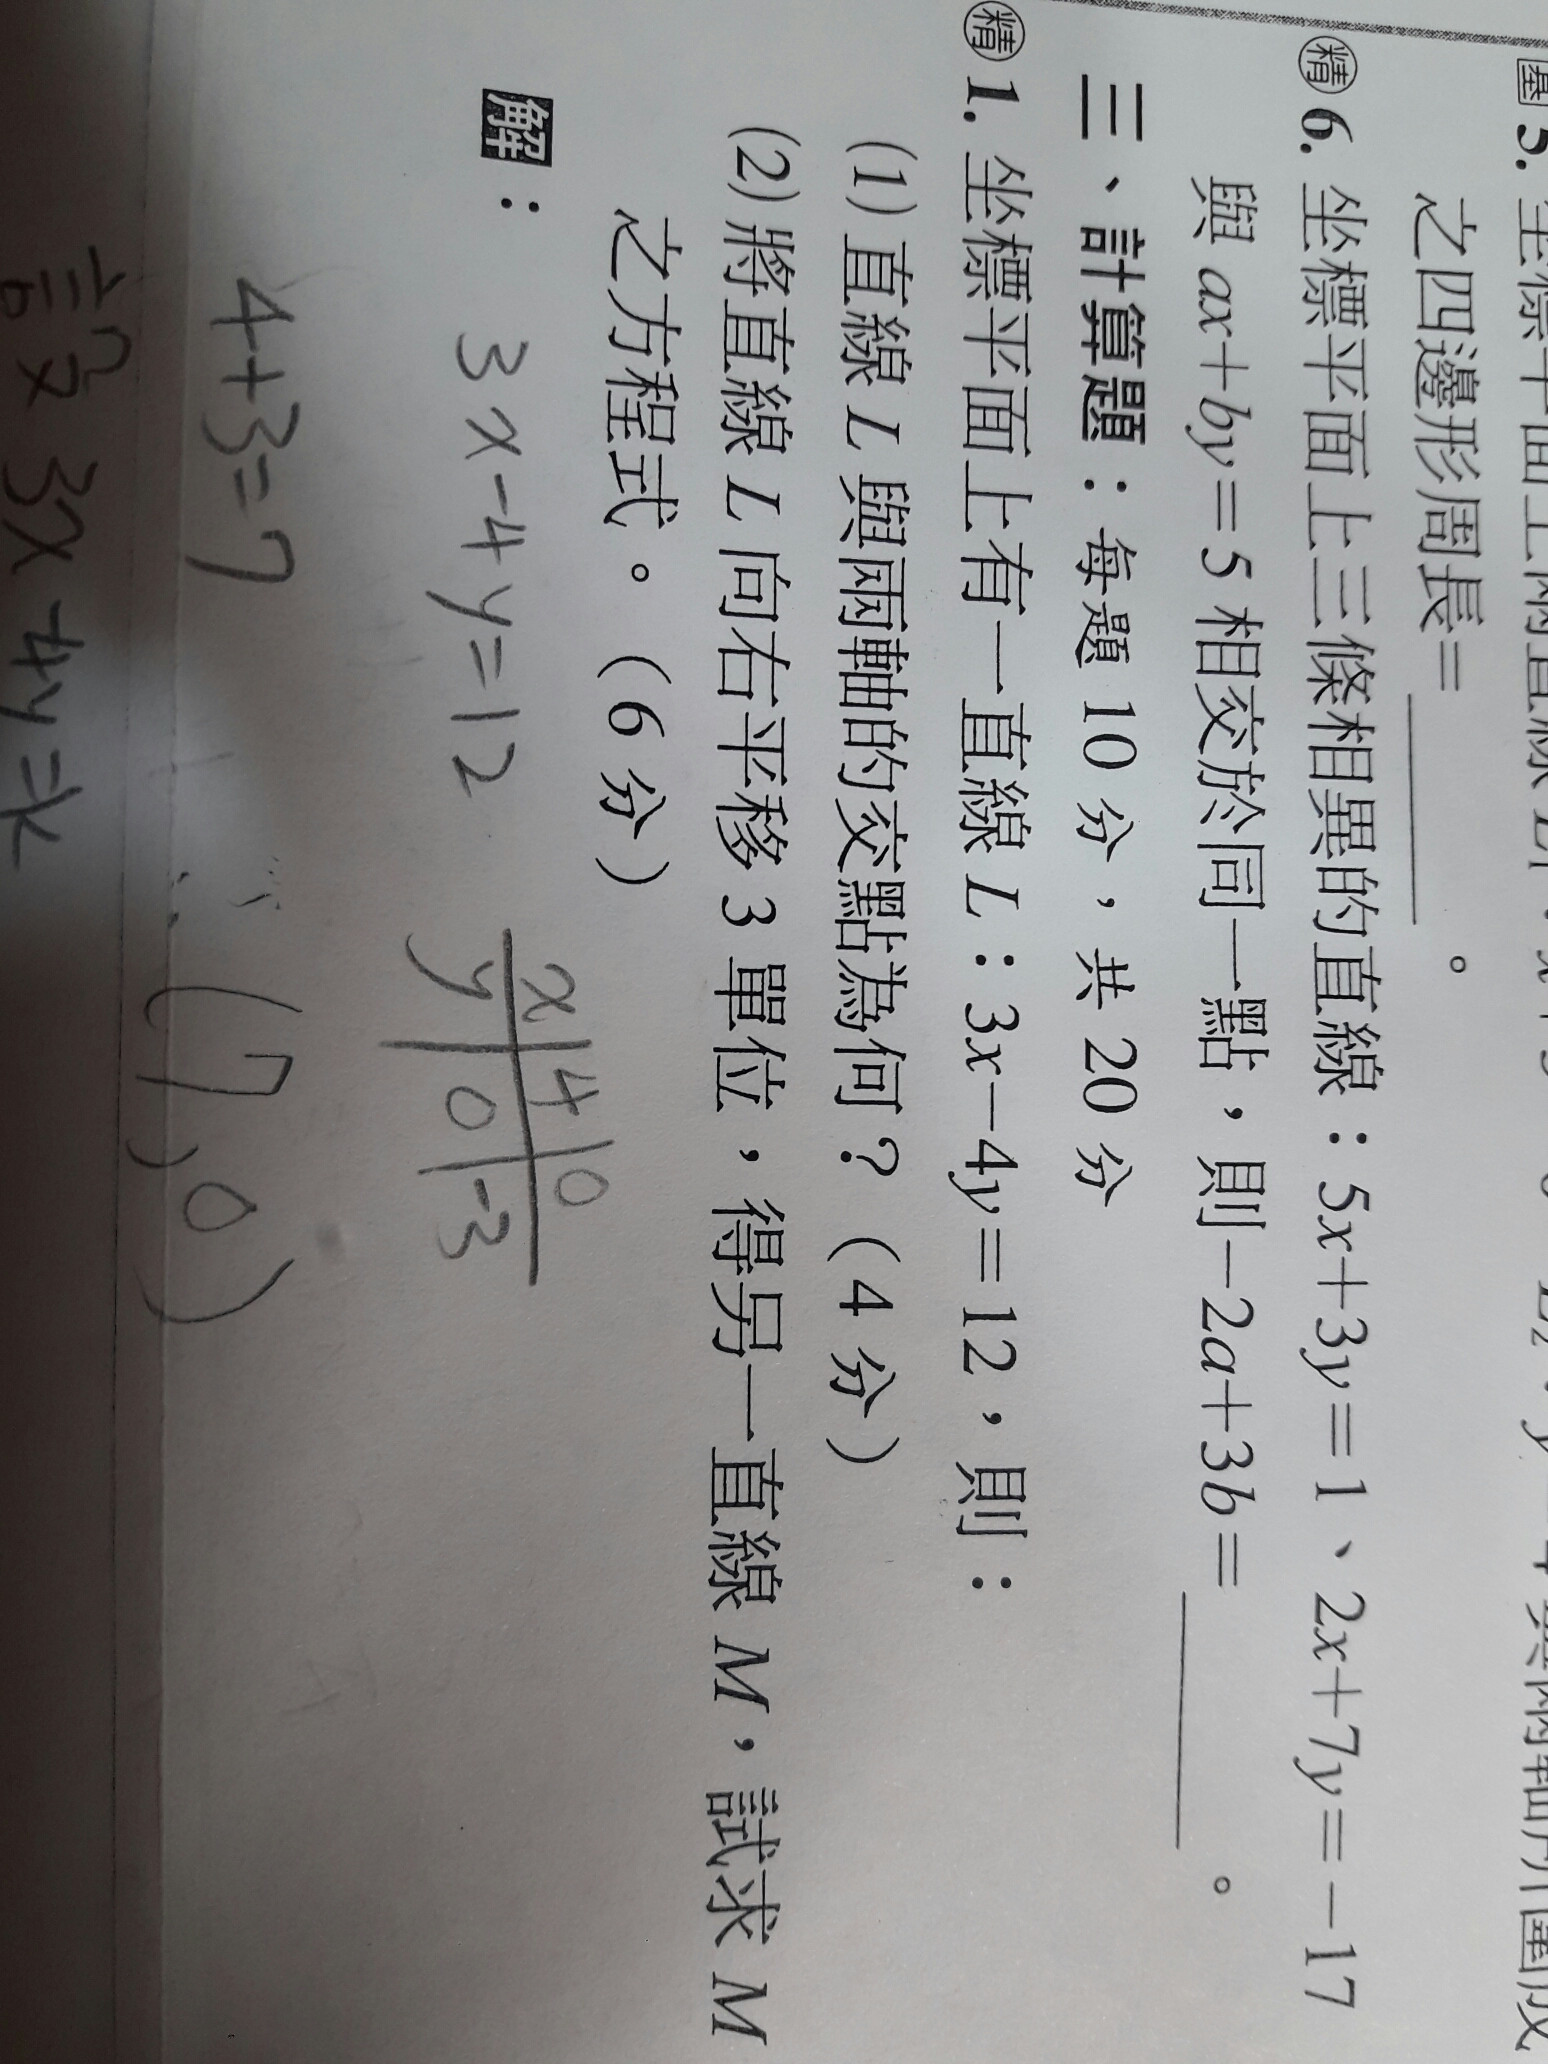 之四邊形周長=＿＿＿。
精 6. 坐標平面上三條相異的直線：5x+3y=1、2x+7y=-17
與 ax+by=5 相交於同一點，則-2a+3b=＿＿＿。
三、計算題：每題 10 分，共 20 分
精 1. 坐標平面上有一直線 L：3x-4y=12，則：
(1) 直線 L 與兩軸的交點為何？（4 分）
(2) 將直線 L 向右平移 3 單位，得另一直線 M，試求 M
之方程式。（6 分）
解：
3x-4y=12
x 4 0
y 0 -3
4+3=7
(7,0)
設 3x-4y=k